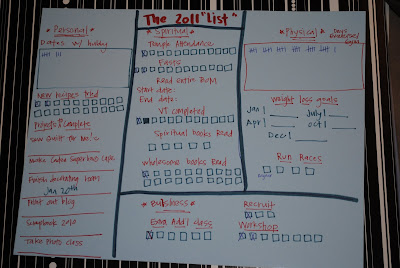 The 2011 "List"
* Personal *
Dates w/ hubby
New recipes tried
Projects Complete
Sew Quilt for
Make Superhero Cape
Finish decorating
Jan 20th
Print out blog
Scrapbook 2010
Take Photo class
* Spiritual *
Temple Attendance
Fasts
Read entire BOM
Start date:
End date:
VT completed
Spiritual books Read
Wholesome books Read
* Physical *
Days
exercise/
gym
Weight loss goals
Jan 1
July 1
Apr 1
Oct 1
Dec 1
Run Races
* Business *
Extra Add'l class
Recruit
Workshop